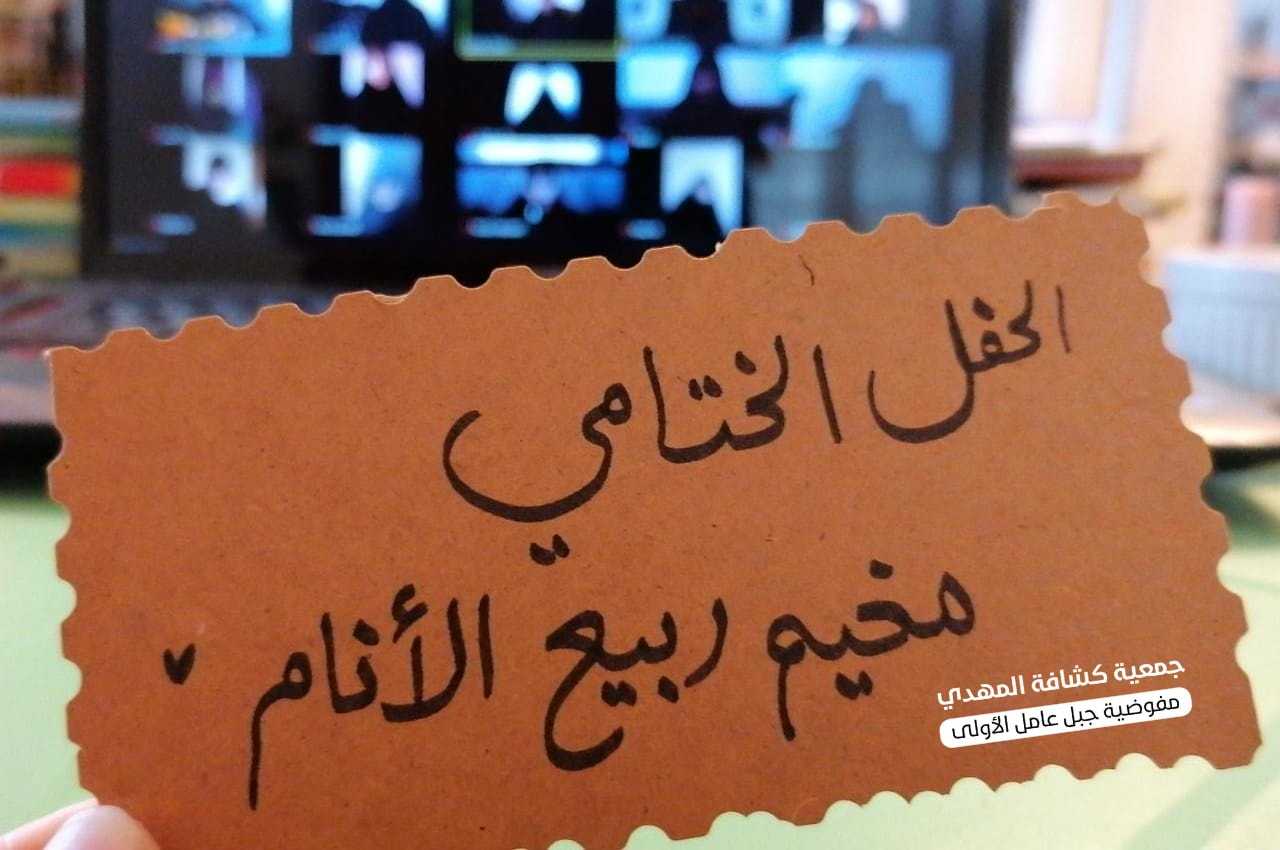 الحفل الختامي
مخيم ربيع الأنام
جمعية كشافة المهدي
مفوضية جبل عامل الأولى